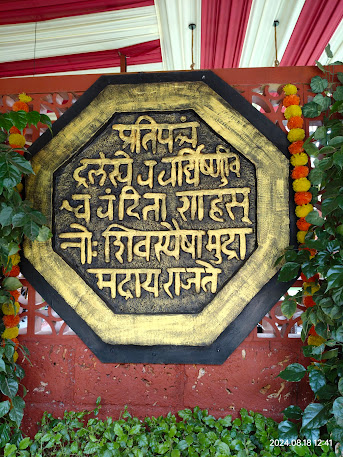 प्रतिपच्चं
द्रलेखेव वर्धिष्णुर्वि
श्ववंदिता शाहसू
नोः शिवस्यैषा मुद्रा
भद्राय राजते
2024.08.18 12:41